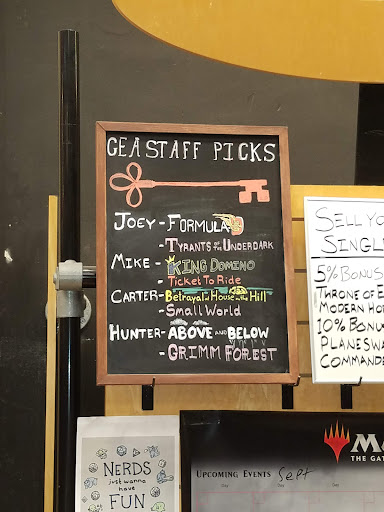 GEA STAFF PICKS
JOEY - FORMULA D
- TYRANTS OF THE UNDERDARK
MIKE - KING DOMINO
- TICKET TO RIDE
CARTER - Betrayal at House on the Hill
- SMALL WORLD
HUNTER - ABOVE AND BELOW
- GRIMM FOREST
SELL YO
SINGL
5% BONUS
THRONE OF E
MODERN HO
10% BONU
PLANESWA
COMMANDE
NERDS
just wanna
have
FUN
MA
THE GAT
UPCOMING EVENTS Sept